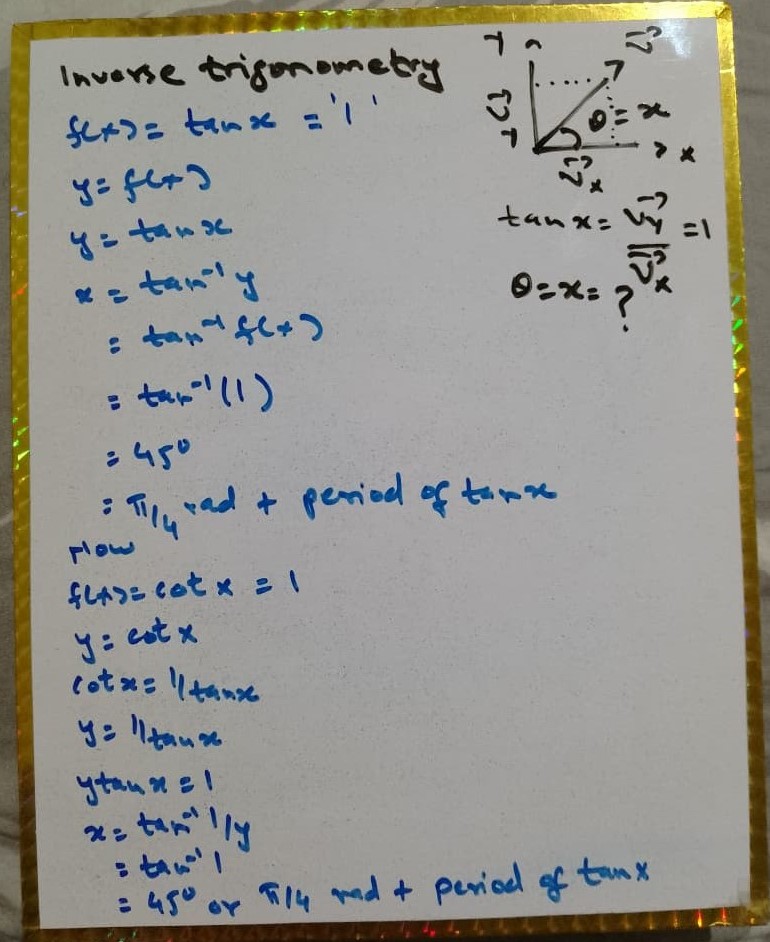 Inverse trigonometry
f(x) = tan x = '1'
y = f(x)
y = tan x
x = tan⁻¹ y
= tan⁻¹ f(x)
= tan⁻¹ (1)
= 45°
= π/4 rad + period of tan x
Now
f(x) = cot x = 1
y = cot x
cot x = 1/tan x
y = 1/tan x
y tan x = 1
x = tan⁻¹ 1/y
= tan⁻¹ 1
= 45° or π/4 rad + period of tan x
Y
V⃗
V⃗ y
θ = x
x
V⃗x
tan x = V⃗y / V⃗x = 1
θ = x = ?